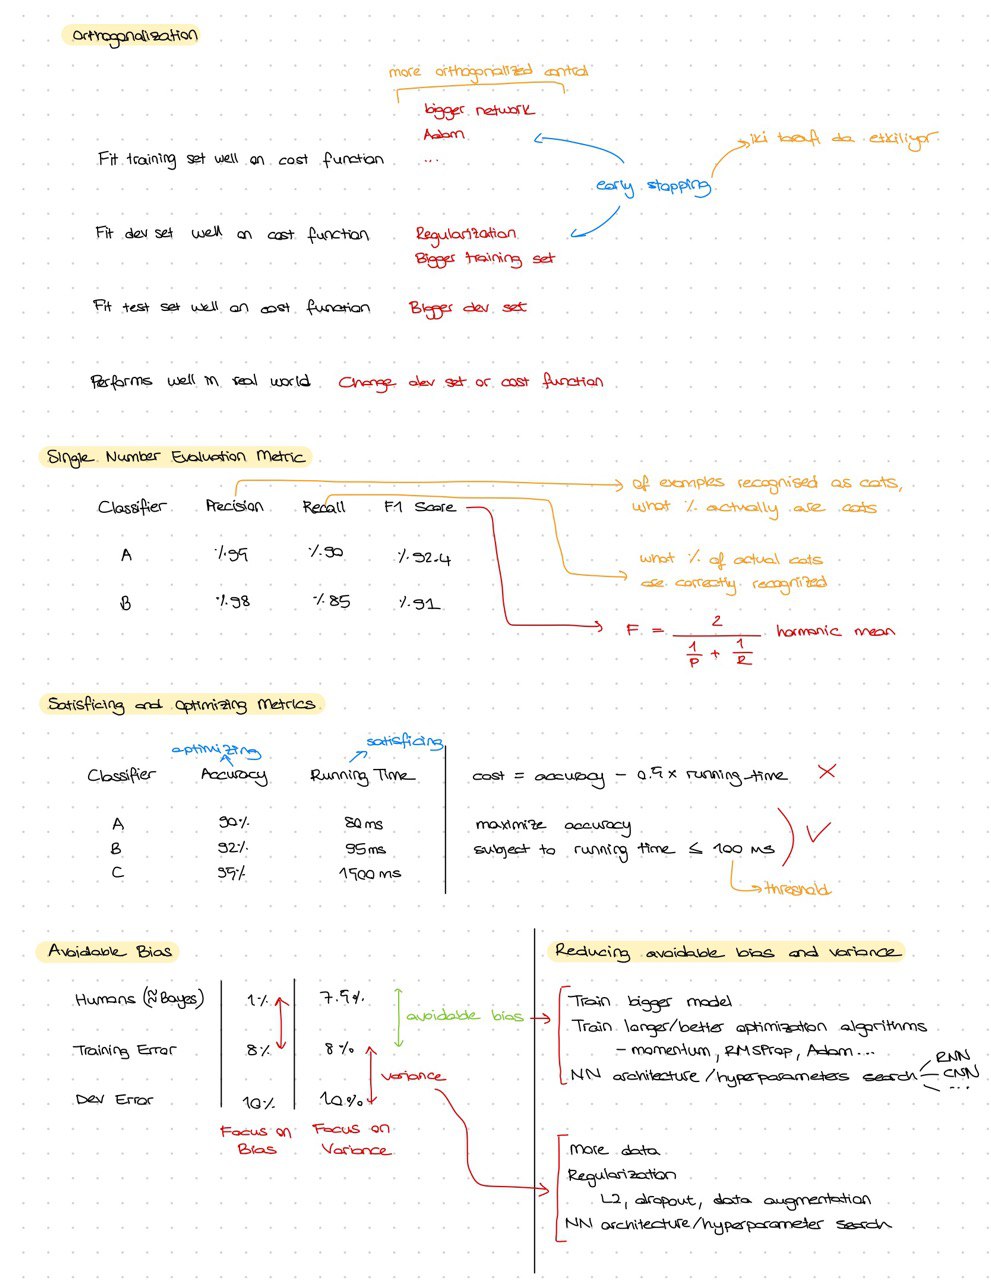 Orthogonalization
more orthogonalized control
bigger network
Adam
...
Fit training set well on cost function
early stopping
iki tarafı da etkiliyor.
Fit dev set well on cost function
Regularization
Bigger training set
Fit test set well on cost function
Bigger dev set
Performs well in real world
Change dev set or cost function
Single Number Evaluation Metric
Classifier Precision Recall F1 Score
A %95 %90 %92.4
B %98 %85 %91
of examples recognised as cats,
what % actually are cats
what % of actual cats
are correctly recognized
F = 2 / (1/P + 1/R) harmonic mean
Satisficing and Optimizing Metrics
optimizing satisficing
Classifier Accuracy Running Time
A 90% 80ms
B 92% 95ms
C 95% 1500ms
cost = accuracy - 0.5 x running-time X
maximize accuracy
subject to running time ≤ 100 ms ✓
threshold
Avoidable Bias
Humans (≈Bayes) 1% 7.5%
Training Error 8% 8%
Dev Error 10% 10%
avoidable bias
variance
Focus on
Bias
Focus on
Variance
Reducing avoidable bias and variance
Train bigger model
Train longer/better optimization algorithms
- momentum, RMSProp, Adam...
NN architecture/hyperparameters search
RNN
CNN
...
more data
Regularization
L2, dropout, data augmentation
NN architecture/hyperparameter search